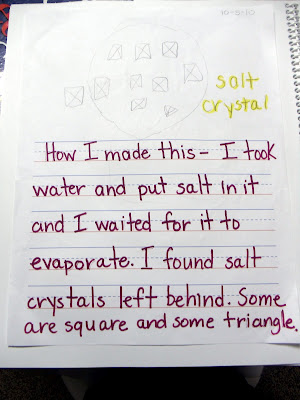 10-5-10
salt
crystal
How I made this- I took
water and put salt in it
and I waited for it to
evaporate. I found salt
crystals left behind. Some
are square and some triangle.